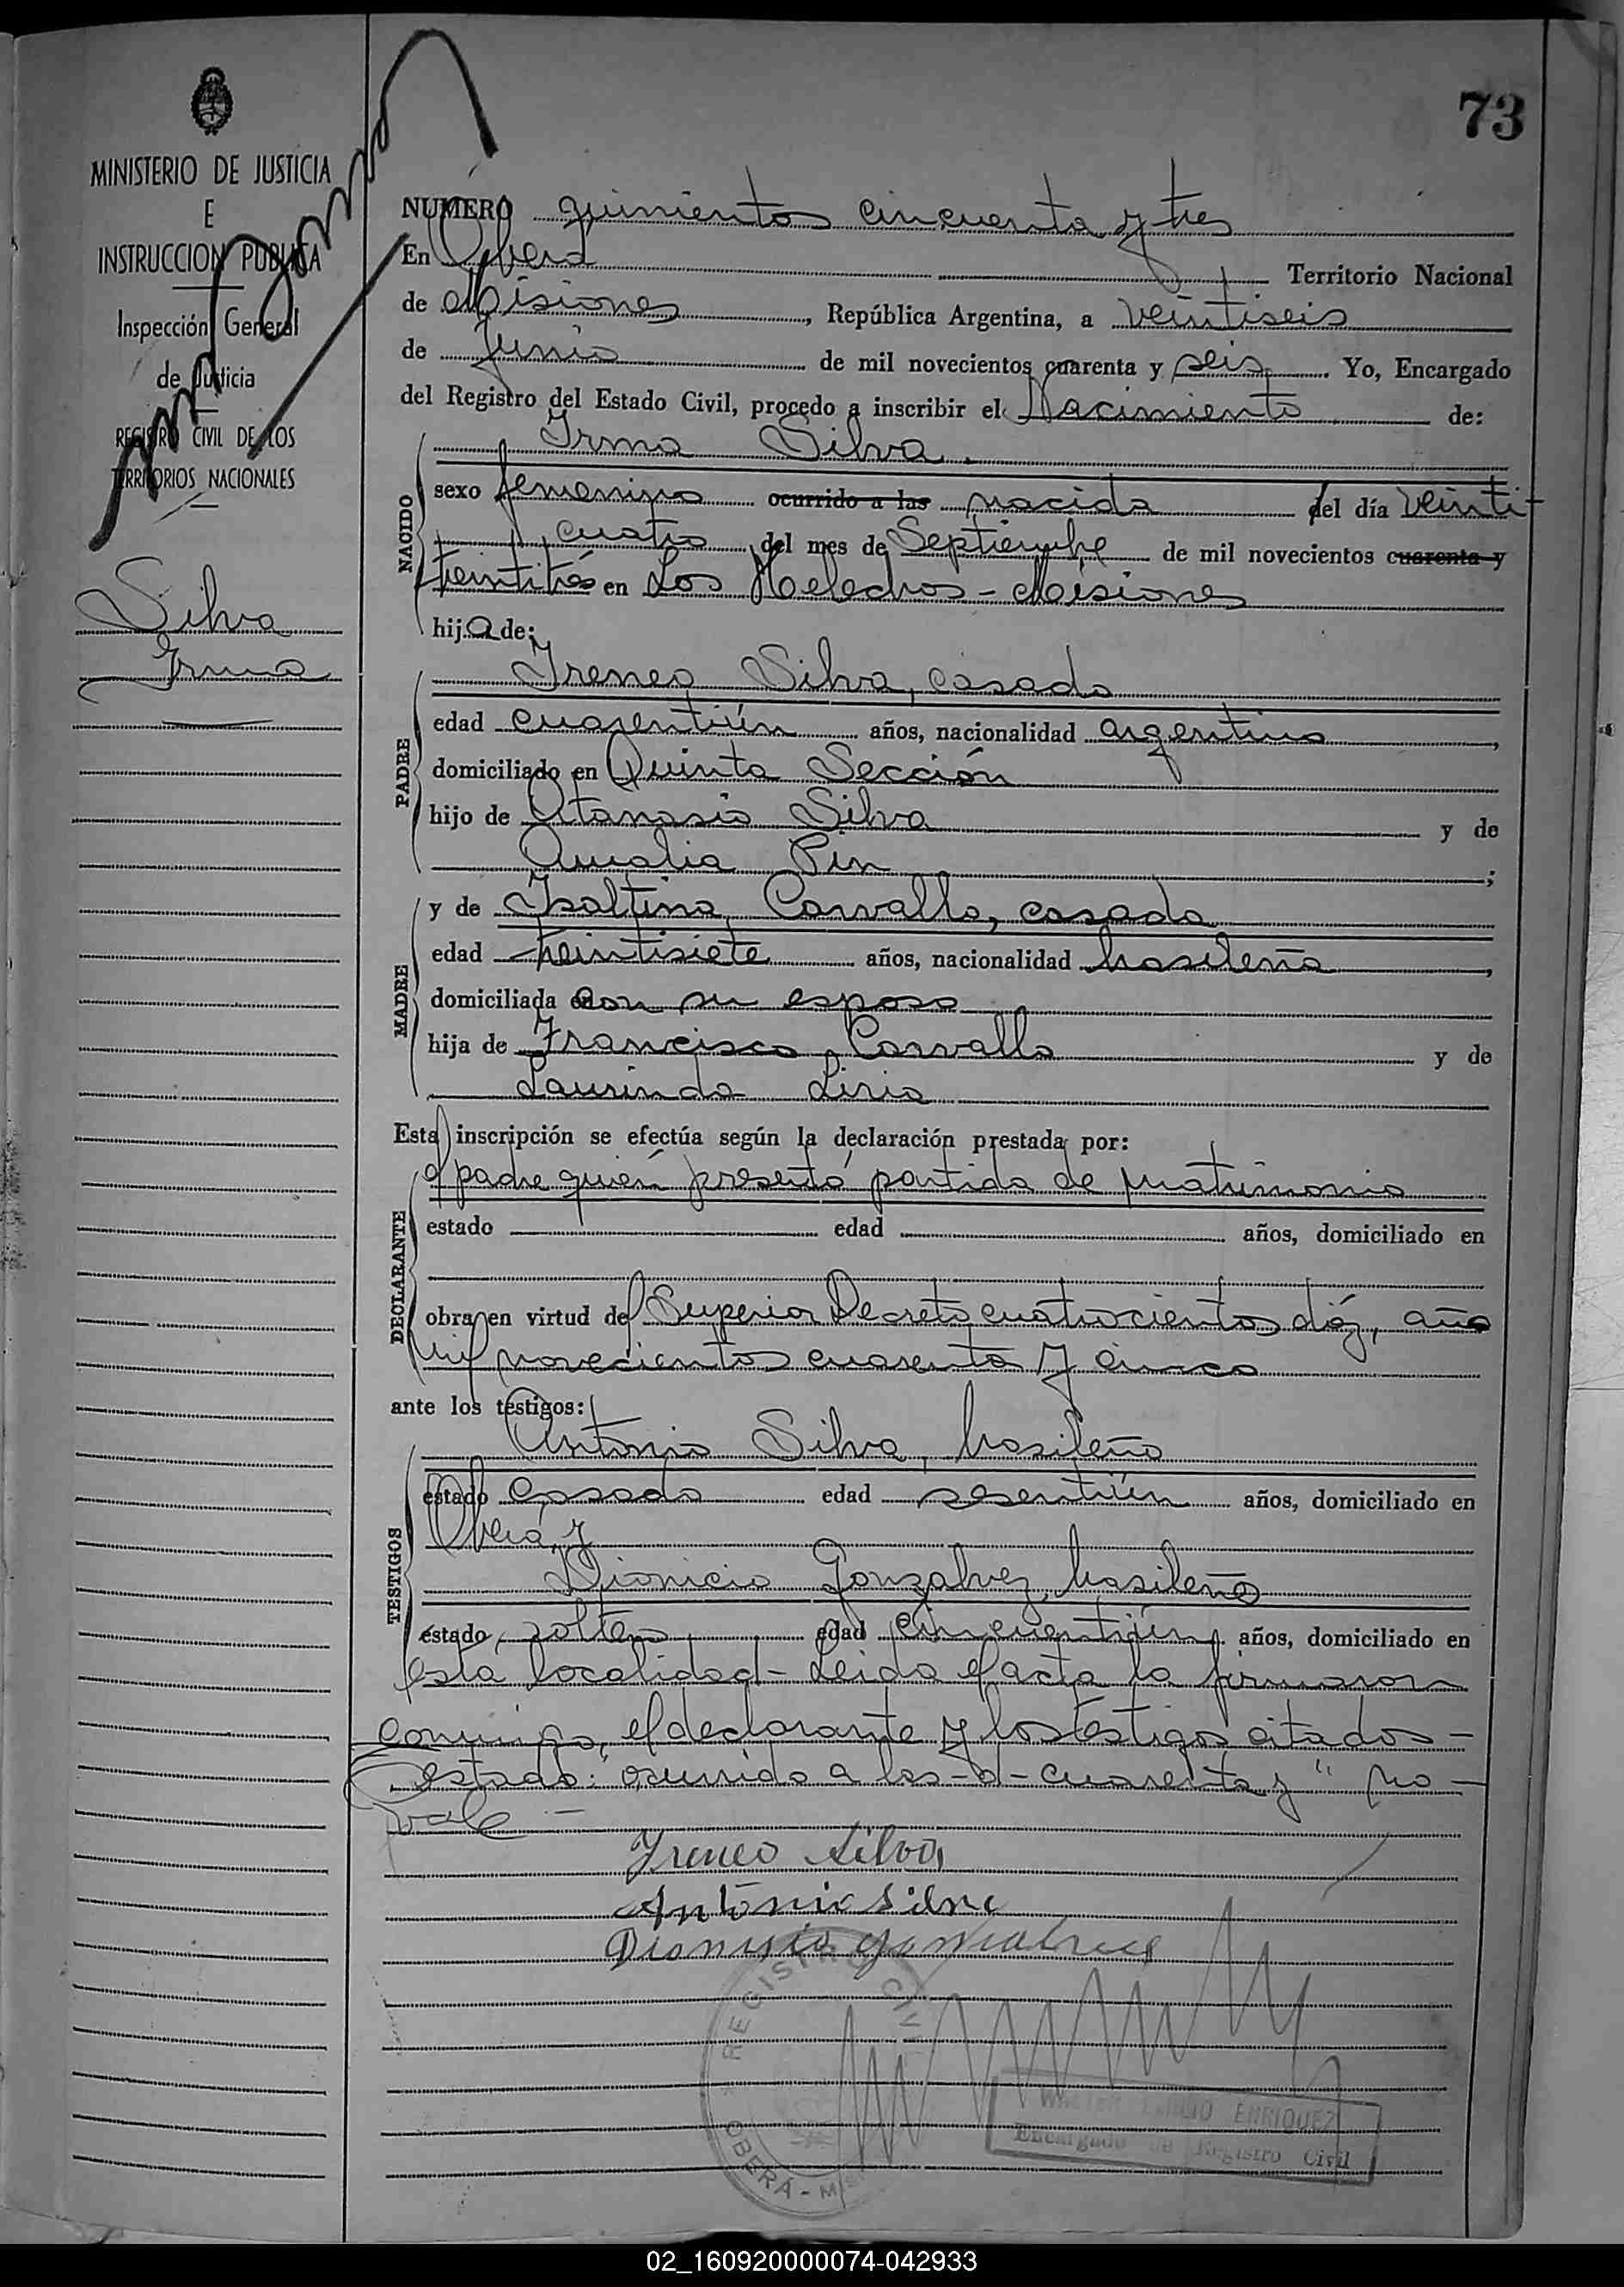 73
MINISTERIO DE JUSTICIA
E
INSTRUCCION PUBLICA
Inspección General
de Justicia
REGISTRO CIVIL DE LOS
TERRITORIOS NACIONALES
Silva
Irma
NUMERO quinientos cincuenta y tres
En Oberá Territorio Nacional
de Misiones, República Argentina, a veintiseis
de Junio de mil novecientos cuarenta y seis. Yo, Encargado
del Registro del Estado Civil, procedo a inscribir el Nacimiento de:
Irma Silva.
NACIDO
sexo femenino ocurrido a las nacida del día veinti-
cuatro del mes de Septiembre de mil novecientos cuarenta y
treintitrés en Los Helechos - Misiones
hija de:
Ireneo Silva, casado
PADRE
edad cuarentiún años, nacionalidad argentino,
domiciliado en Quinta Sección
hijo de Atanasio Silva y de
Amalia Pin;
y de Isoltina Carvallo, casada
MADRE
edad treintisiete años, nacionalidad brasileña,
domiciliada con su esposo
hija de Francisco Carvallo y de
Laurinda Liria
Esta inscripción se efectúa según la declaración prestada por:
el padre quién presentó partida de matrimonio
DECLARANTE
estado edad años, domiciliado en
obra en virtud del Superior Decreto cuatrocientos diéz, año
mil novecientos cuarenta y cinco
ante los testigos:
Antonio Silva, brasileño
TESTIGOS
estado casado edad sesentiún años, domiciliado en
Oberá, y
Dionicio Gonzalvez, brasileño
estado, soltero edad cincuentiún años, domiciliado en
esta localidad - Leida el acta la firmaron
conmigo, el declarante y los testigos citados -
Testado: ocurrido a las - d - cuarenta y " no -
vale -
Ireneo Silva
Antonio Silva
REGISTRO CIVIL
OBERÁ - M
ENRIQUEZ
Encargado de Registro Civil
02_160920000074-042933